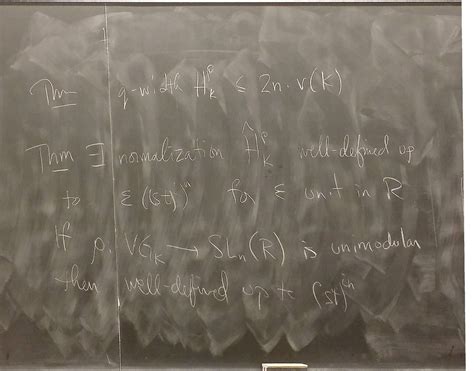 Thm q-width H_K^ρ ≤ 2n·v(K)
Thm ∃ normalization Ĥ_K^ρ well-defined up
to ε(st)^n for ε unit in R
If ρ: VG_K → SL_n(R) is unimodular
then well-defined up to (st)^in